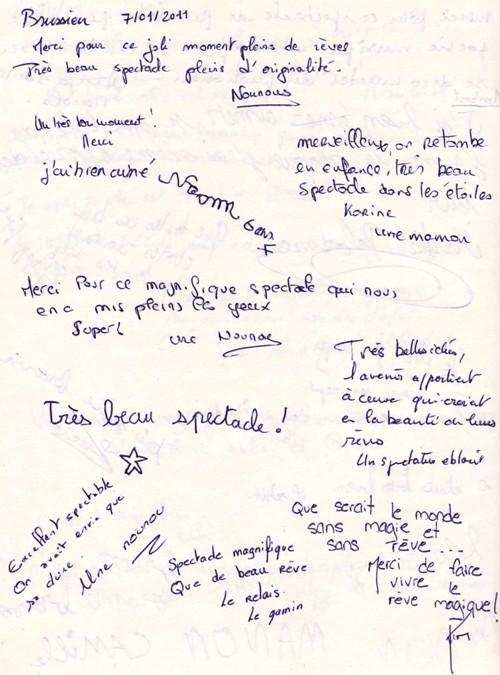 Brussieu 7/01/2011
Merci pour ce joli moment pleins de rèves
Très beau spectacle pleins d'originalité.
Nounous
Un très bon moment!
Merci
j'ai bien aimé
merveilleux, on retombe
en enfance, très beau
spectacle dans les étoiles
Karine
une maman
Merci Pour ce magnifique spectacle qui nous
en a mis pleins les yeux
Super!
une Nounou
Très belle
l'avenir appartient
à ceux qui croient
en la beauté de leurs
rêves
Un spectateur ébloui
Très beau spectacle!
Excellent spectable
On avait envie que
ça dure.
Une nounou
Spectacle magnifique
Que de beau rêve
Le relais
Le gamin
Que serait le monde
sans magie et
sans rêve...
Merci de faire
vivre le
rêve magique!